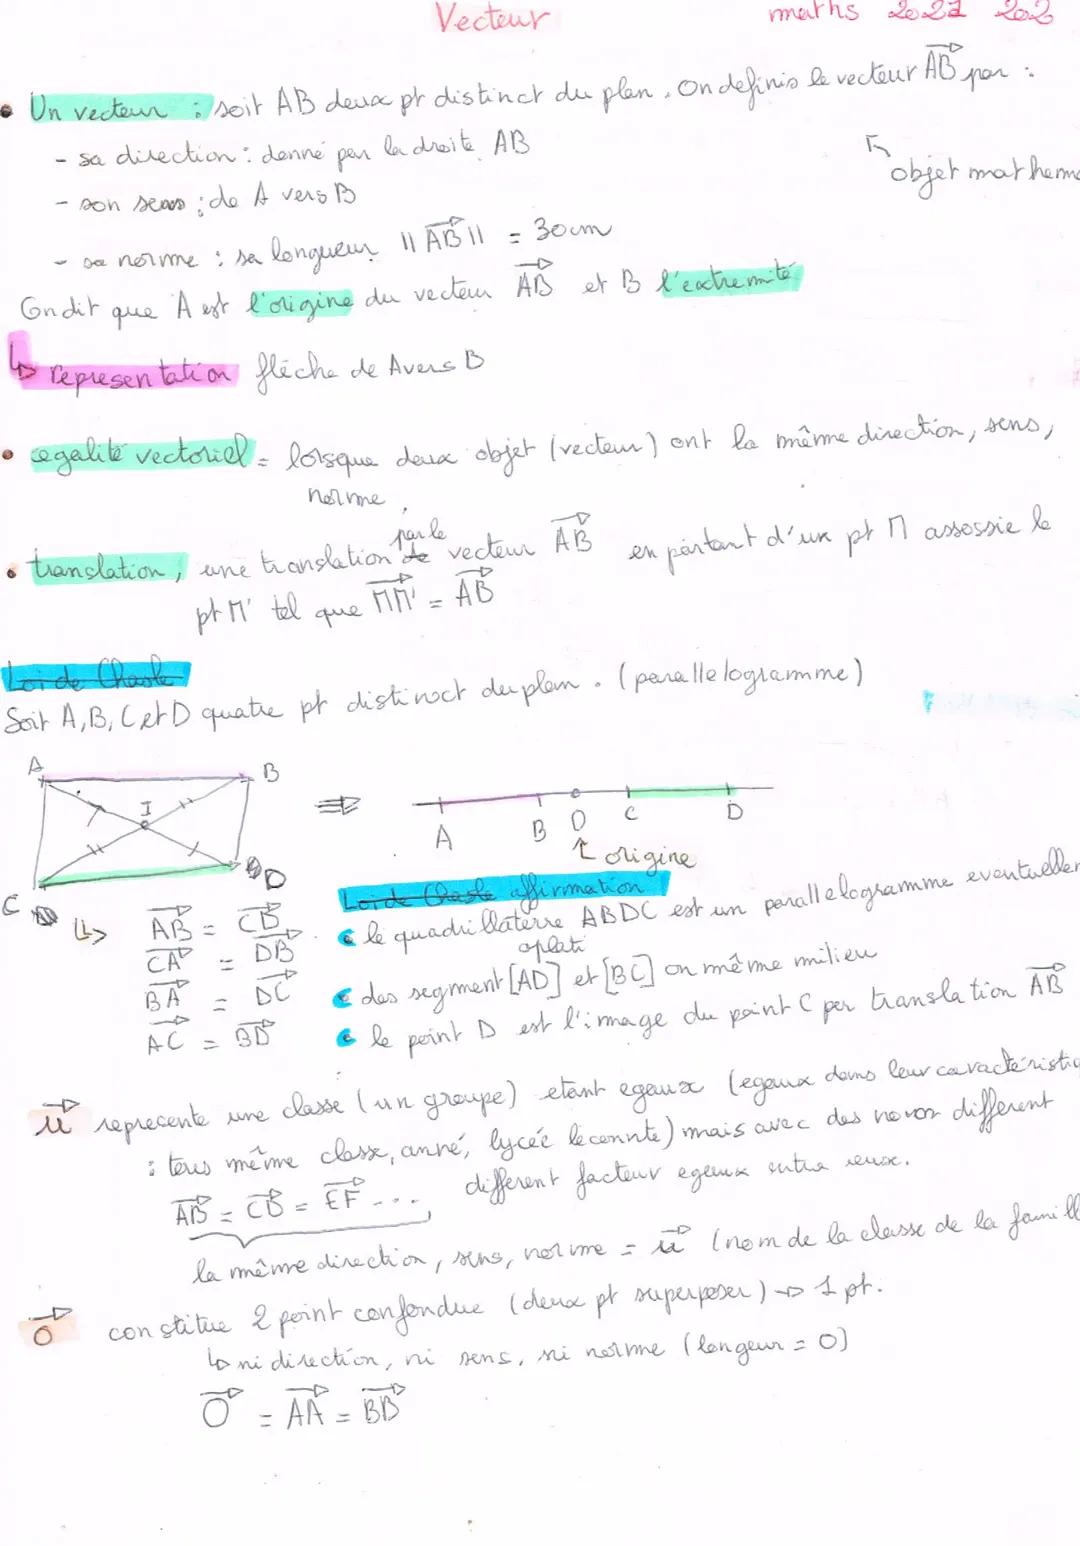 Vecteur
maths 2021 202
• Un vecteur : soit AB deux pt distinct du plan. On definis le vecteur AB par :
- sa direction : donné par la droite AB
objet mathema
- son sens : de A vers B
- sa norme : sa longueur || AB || = 30cm
On dit que A est l'origine du vecteur AB et B l'extremité
↳ representation flèche de A vers B
• egalité vectoriel = lorsque deux objet (vecteur) ont la même direction, sens,
norme
par le
• translation, une translation de vecteur AB en partant d'un pt M assossie le
pt M' tel que MM' = AB
Loi de Chasle
Soit A, B, C et D quatre pt distinct du plan. (parallelogramme)
A B
I
⇒
A B O C D
↑ origine
C D
Loi de Chasle affirmation
↳ AB = CD
• le quadrillaterre ABDC est un parallelogramme eventueller
aplati
CA = DB
BA = DC
• des segment [AD] et [BC] on même milieu
AC = BD
• le point D est l'image du point C par translation AB
u represente une classe (un groupe) etant egaux (egaux dans leur caractéristiq
: tous même classe, anné, lycée lecomnte) mais avec des noms different
AB = CD = EF ... different facteur egaux entre eux.
la même direction, sens, norme = u (nom de la classe de la famill
O constitue 2 point confondue (deux pt superposer) → 1 pt.
↳ ni direction, ni sens, ni norme (longeur = 0)
O = AA = BB